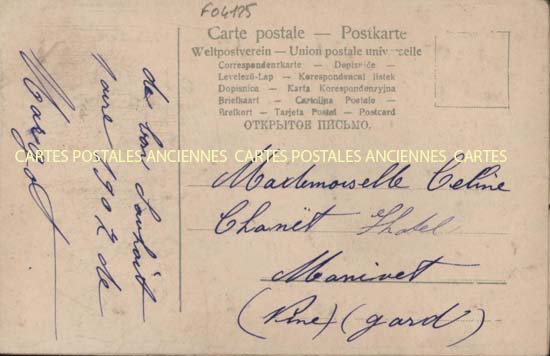 F04175
Carte postale – Postkarte
Weltpostverein – Union postale universelle
Correspondenzkarte – Dopisnice –
Levelező-Lap – Korespondencai listek
Dopisnica – Karta Korespondencyjna
Briefkaart – Cartolina Postale –
Brefkort – Tarjeta Postal – Postcard
ОТКРЫТОЕ ПИСЬМО.
CARTES POSTALES ANCIENNES CARTES POSTALES ANCIENNES CARTES
Mademoiselle Celine
Chanët
(gard)
de bon Souhait
1902 de
Margot